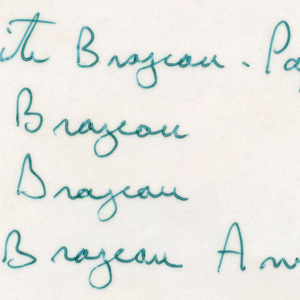 ite Brazeau - Pa
Brazeau
Brazeau
Brazeau A